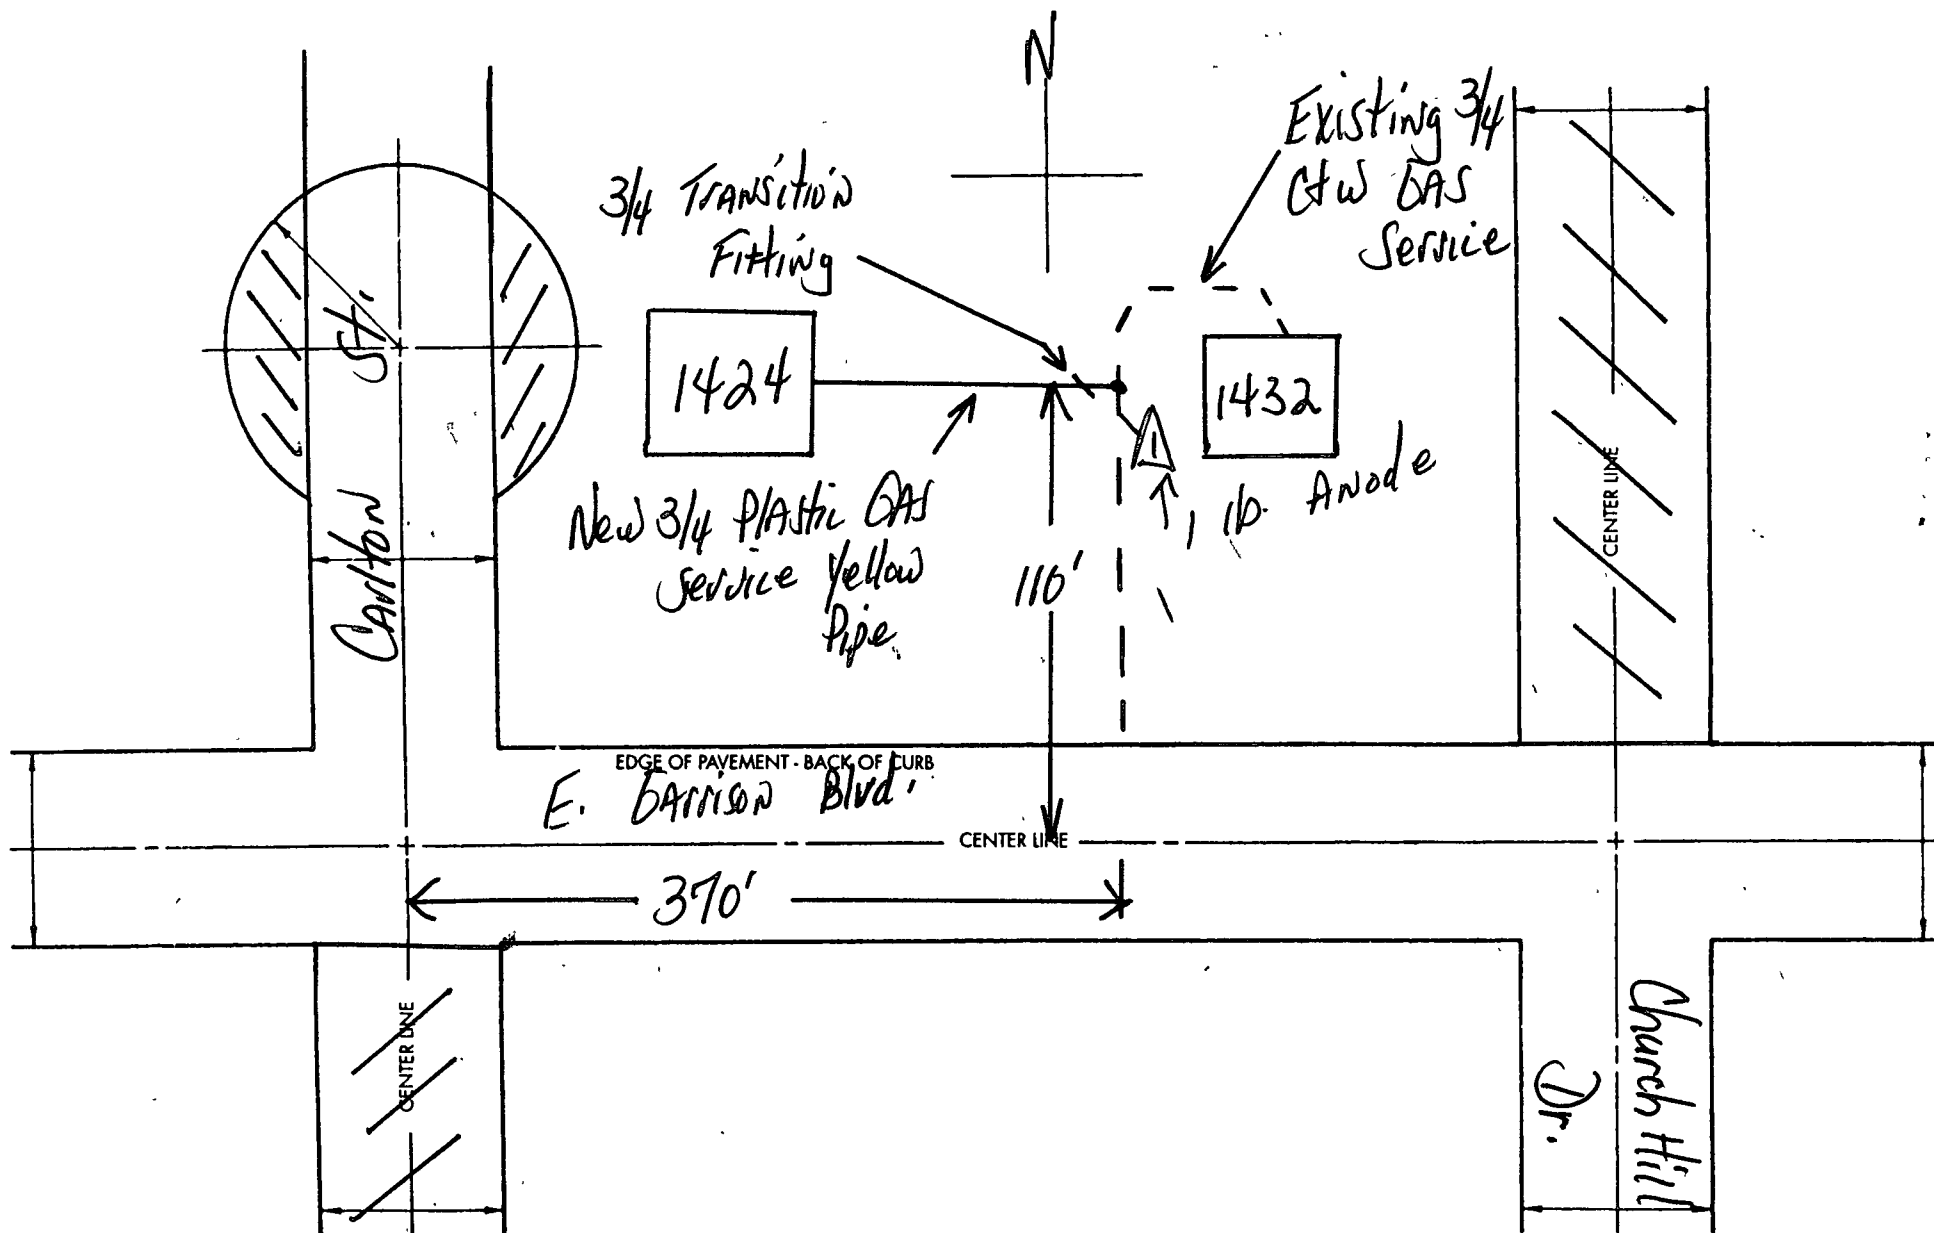 N
Existing 3/4
C+W GAS
Service
3/4 Transition
Fitting
1424
1432
1
1 lb. Anode
New 3/4 Plastic GAS
Service Yellow
Pipe
110'
Carlton St.
CENTER LINE
EDGE OF PAVEMENT - BACK OF CURB
E. Garrison Blvd.
CENTER LINE
370'
CENTER LINE
Church Hill
Dr.